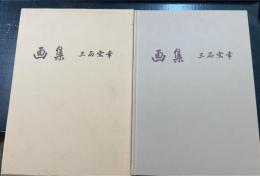 画集 三石宏幸
画集 三石宏幸